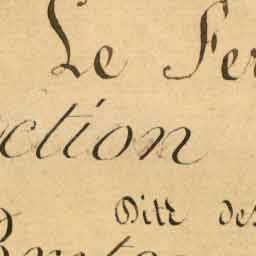 Le Fer
ction
Ditt des